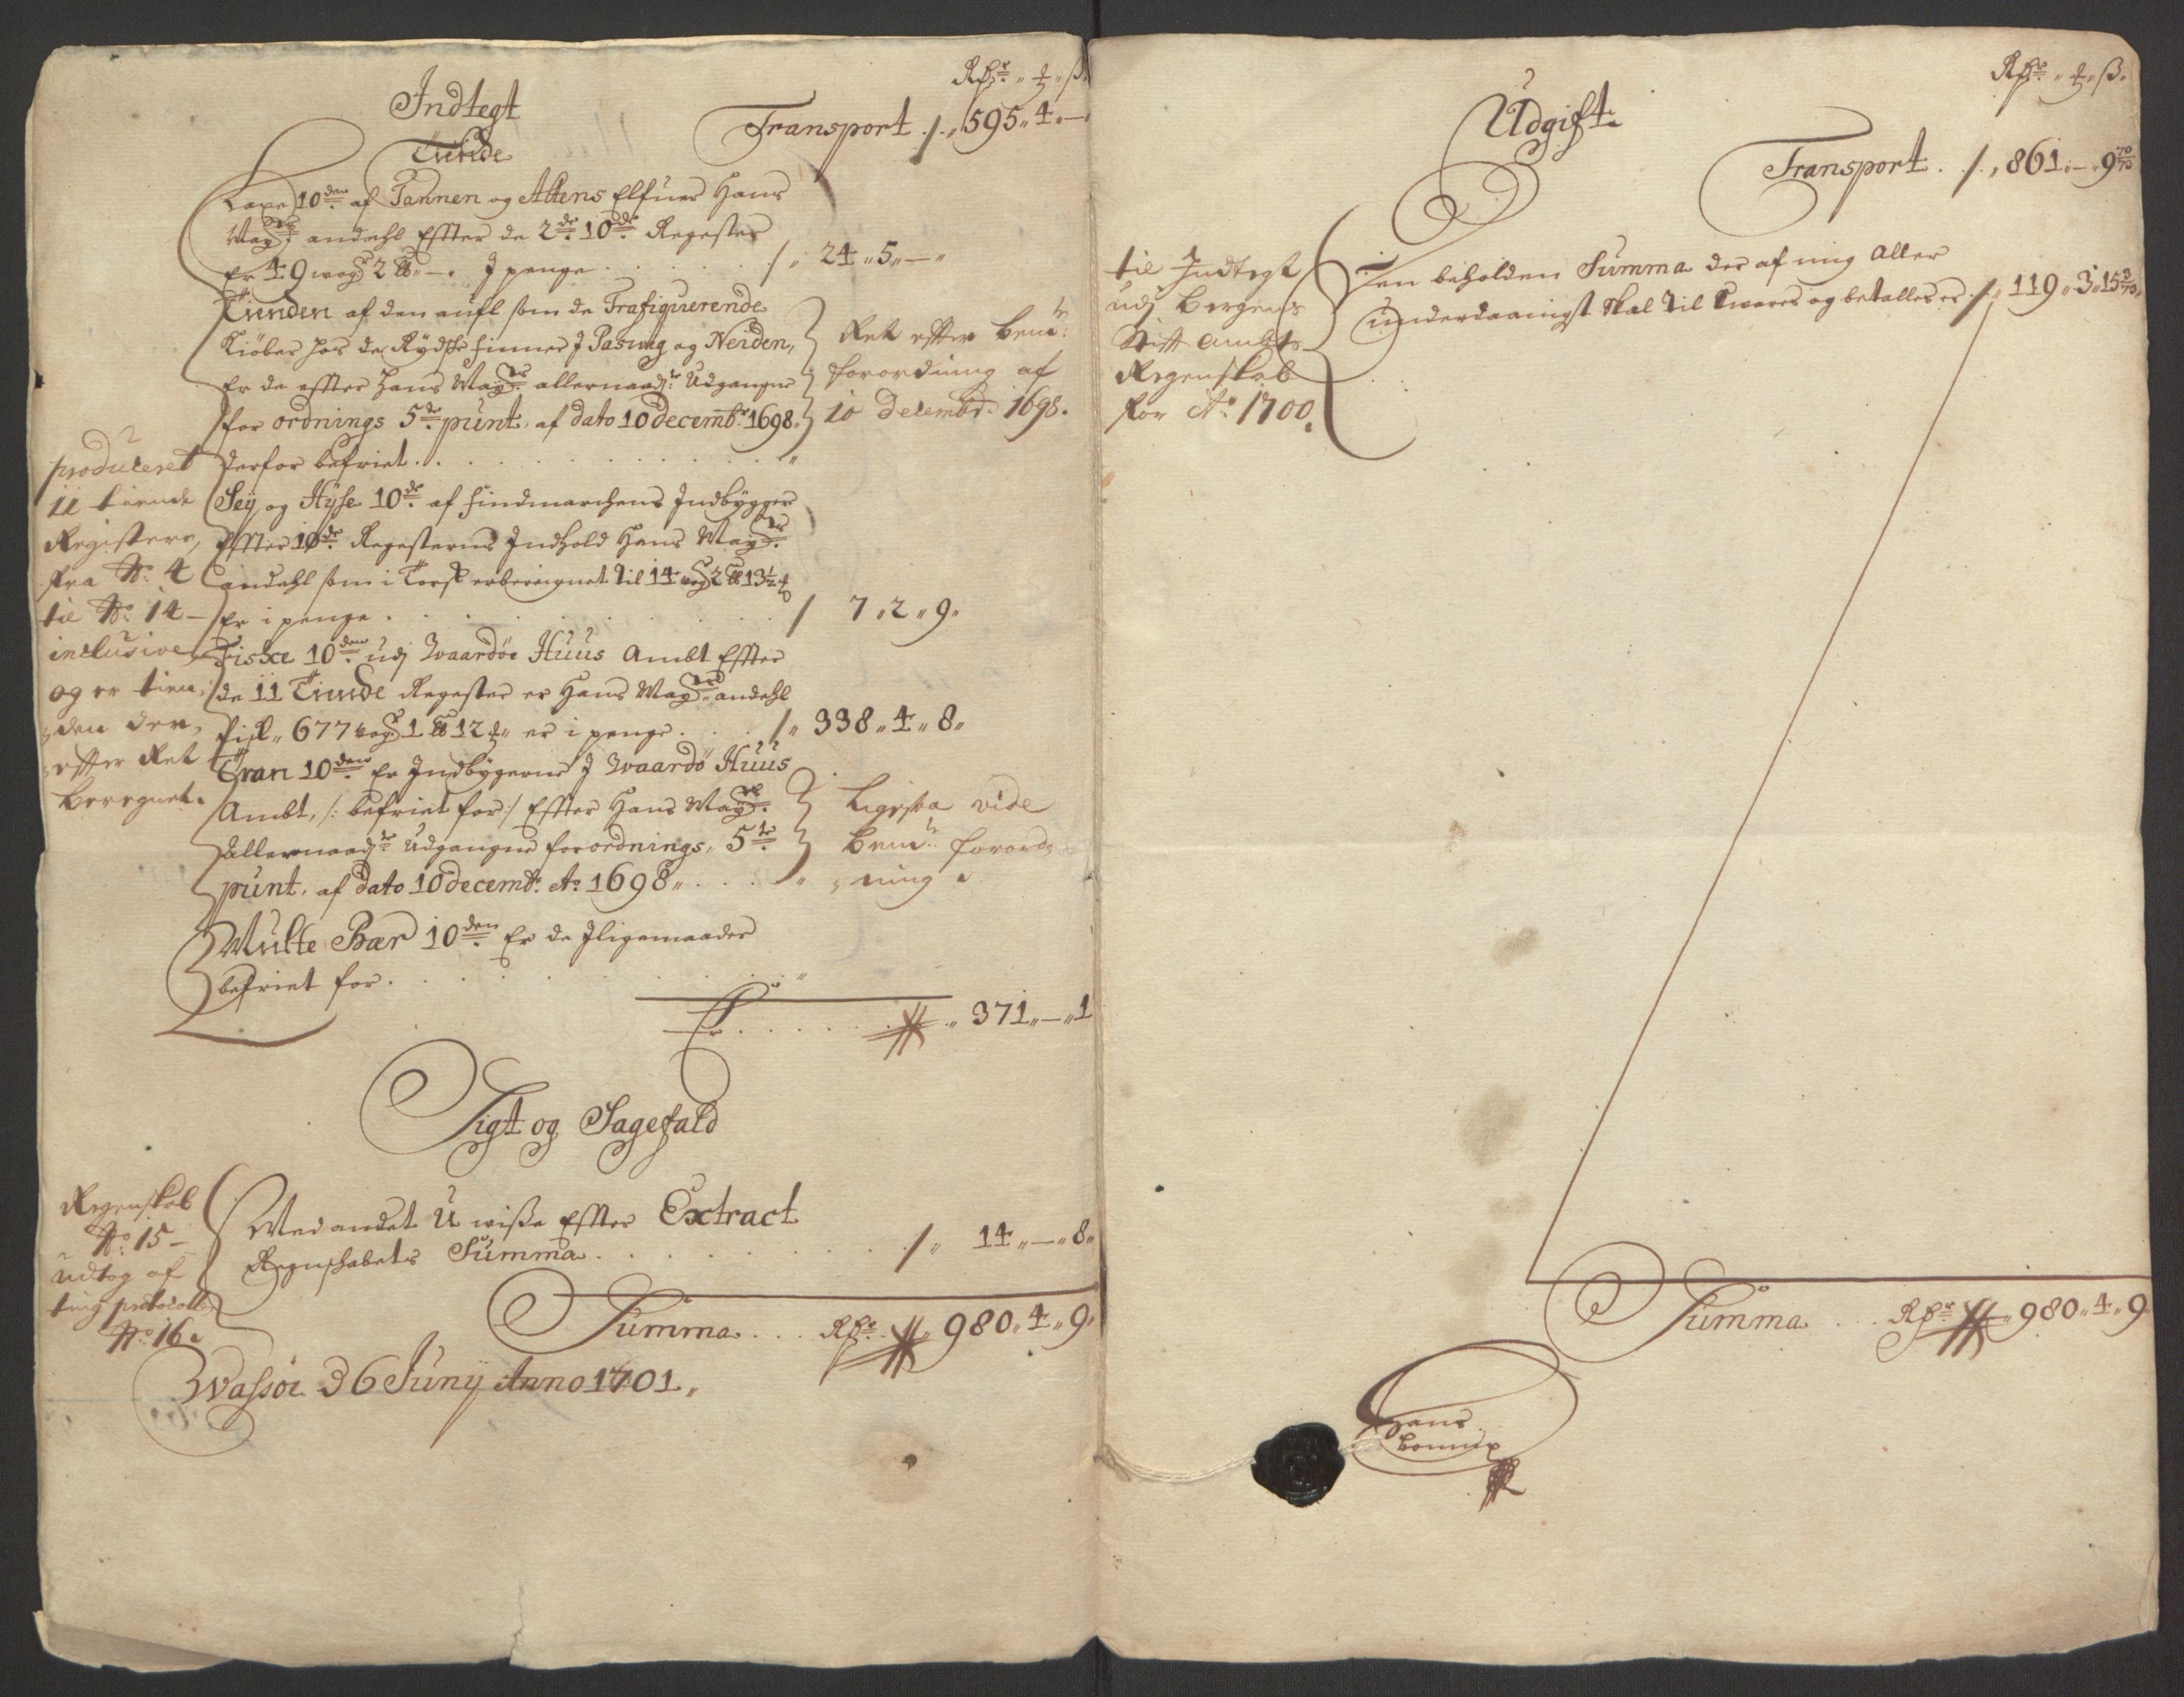 Rdr. " ₰ " ß.
Indtegt
Transport ./. " 595 " 4 " — "
Tiende
Laxe 10den af Tannen og Altens Elfuer Hans
Maÿts andehl Effter de 2de 10de Regester
Er 49 wog 2 — . J penge . . . . / " 24 " 5 " — "
Tienden af den aufl som de Trafiquerende
Kiöber hos de Rydske finner J Paswig og Neiden,
Er de effter Hans Mayts allernaadste Udgangne
for ordnings 5te punt, af dato 10 decembr 1698.
derfor befriet . .
Ret efter bemte
forordning af
10 Decembr. 1698.
produceret
11 tiende
Registere,
fra No. 4
til No. 14 —
inclusive
og er tien,
den der,
efter Ret
beregnet.
Seÿ og Hÿse 10de af findmarchens Indbÿgger
Effter 10de Regesterns Indhold Hans Mayts
andehl som i Torsk erberignet til 14 wog 2 13½
Er i penge . . . . / 7 " 2 " 9 "
Fiske 10den udj Waardöe Huus Ambt Effter
de 11 Tiende Regester er Hans Mayts andehl
fisk " 677 wog 1 12 " er i penge . . . / " 338 " 4 " 8 "
Tran 10den Er Indbygerne J Waardö Huus
Ambt, /: befriet for :/ Effter Hans Mayts
Allernaadste Udgangne forordnings " 5te
punt. af dato 10 decembr. Ao. 1698 " . . .
Ligesaa vide
bemte forord,
ning .
Multe Bær 10den Er de Jligemaader
befriet for . . . .
Er . . . . . " 371 " — " 1
Sigt og Sagefald
Regenskab
No. 15 —
udtog af
ting protocoll
No. 16.
Med andet U wisse Effter Extract
Regnskabets Summa . . . . . / " 14 " — " 8 "
Summa . . . Rdr. " 980 " 4 " 9 "
Wassöe d 6 Junÿ Anno 1701 "
Rdr. " ₰ " ß.
Udgift
Transport . /. " 861 " — " 9 70/73
til Indtegt
udj Bergens
Stift Ambts
Regenskab
for Ao. 1700.
Den beholden Summa der af mig Aller
underdaanigst skal til Swares og betalles er / " 119 " 3 " 15 3/73 "
Summa . . . Rdr. " 980 " 4 " 9
Hans